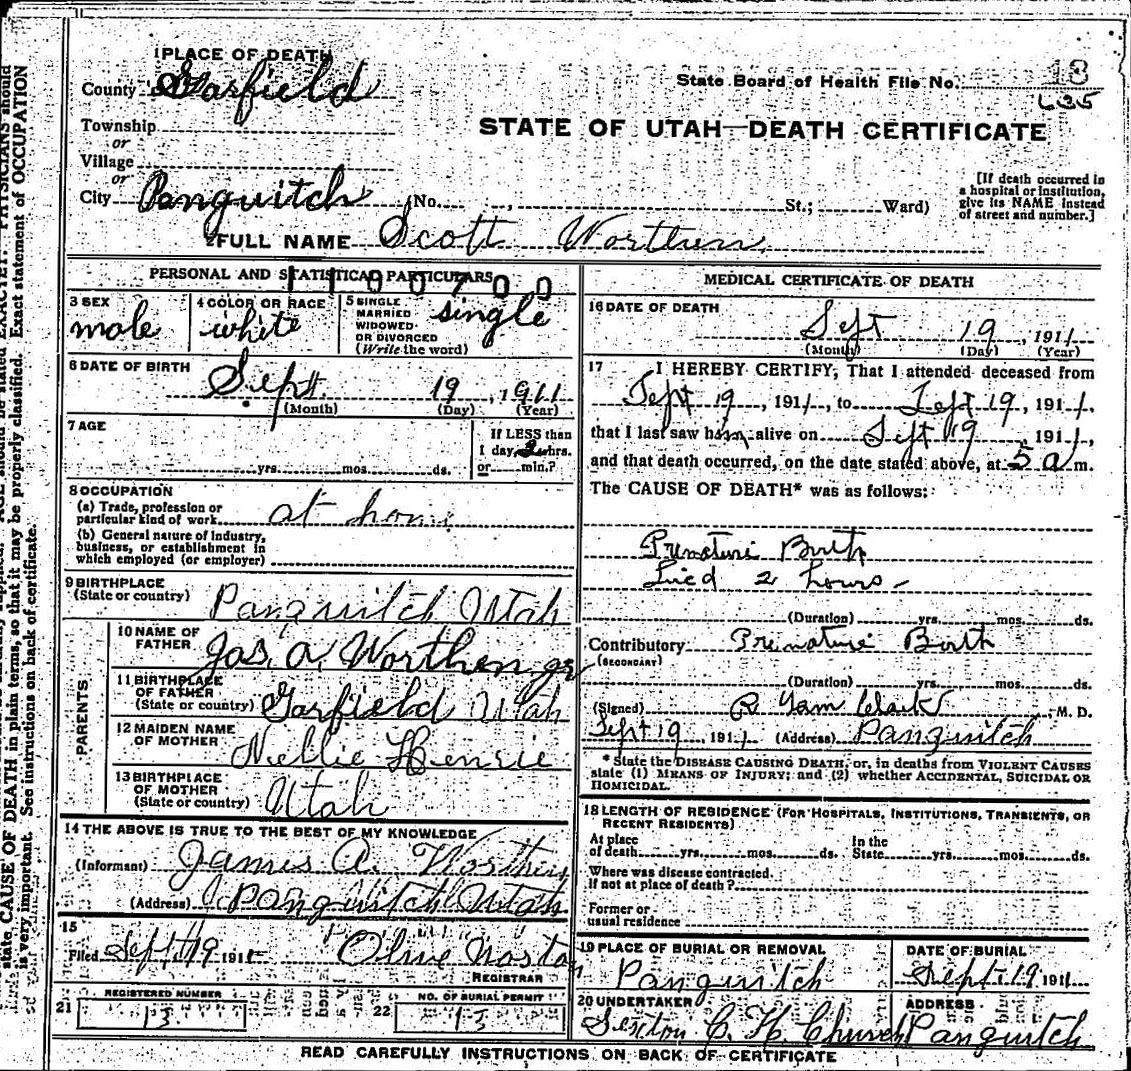 1 PLACE OF DEATH
County Garfield
State Board of Health File No. 18
635
Township
or
STATE OF UTAH—DEATH CERTIFICATE
Village
or
City Panguitch (No. , St.; Ward)
[If death occurred in
a hospital or institution,
give its NAME instead
of street and number.]
2 FULL NAME Scott Worthen
PERSONAL AND STATISTICAL PARTICULARS
1 1 0 0 7 0 0
3 SEX
male
4 COLOR OR RACE
white
5 SINGLE
MARRIED
WIDOWED
OR DIVORCED
(Write the word)
single
6 DATE OF BIRTH
Sept. 19, 1911
(Month) (Day) (Year)
7 AGE
yrs. mos. ds.
If LESS than
1 day, 2 hrs.
or min.?
8 OCCUPATION
(a) Trade, profession or
particular kind of work at home
(b) General nature of industry,
business, or establishment in
which employed (or employer)
9 BIRTHPLACE
(State or country) Panguitch Utah
PARENTS
10 NAME OF
FATHER Jas. A. Worthen Jr
11 BIRTHPLACE
OF FATHER
(State or country) Garfield Utah
12 MAIDEN NAME
OF MOTHER Nellie Henrie
13 BIRTHPLACE
OF MOTHER
(State or country) Utah
14 THE ABOVE IS TRUE TO THE BEST OF MY KNOWLEDGE
(Informant) James A. Worthen
(Address) Panguitch Utah
15
Filed Sept 19 191
Olive
REGISTRAR
21 REGISTERED NUMBER
13
22 NO. OF BURIAL PERMIT
13
MEDICAL CERTIFICATE OF DEATH
16 DATE OF DEATH
Sept 19, 1911
(Month) (Day) (Year)
17 I HEREBY CERTIFY, That I attended deceased from
Sept 19, 1911, to Sept 19, 1911,
that I last saw him alive on Sept 19, 1911,
and that death occurred, on the date stated above, at 5 a m.
The CAUSE OF DEATH* was as follows:
Premature Birth
Lied 2 hours
(Duration) yrs. mos. ds.
Contributory Premature Birth
(SECONDARY)
(Duration) yrs. mos. ds.
(Signed) R Clark M. D.
Sept 19 1911 (Address) Panguitch
* State the DISEASE CAUSING DEATH, or, in deaths from VIOLENT CAUSES
state (1) MEANS OF INJURY; and (2) whether ACCIDENTAL, SUICIDAL OR
HOMICIDAL.
18 LENGTH OF RESIDENCE (FOR HOSPITALS, INSTITUTIONS, TRANSIENTS, OR
RECENT RESIDENTS)
At place
of death yrs. mos. ds.
In the
State yrs. mos. ds.
Where was disease contracted,
if not at place of death?
Former or
usual residence
19 PLACE OF BURIAL OR REMOVAL
Panguitch
DATE OF BURIAL
Sept 19 1911
20 UNDERTAKER
Sexton C. H. Church
ADDRESS
Panguitch
READ CAREFULLY INSTRUCTIONS ON BACK OF CERTIFICATE
PHYSICIANS should
state CAUSE OF DEATH in plain terms, so that it may be properly classified. Exact statement of OCCUPATION
is very important. See instructions on back of certificate.